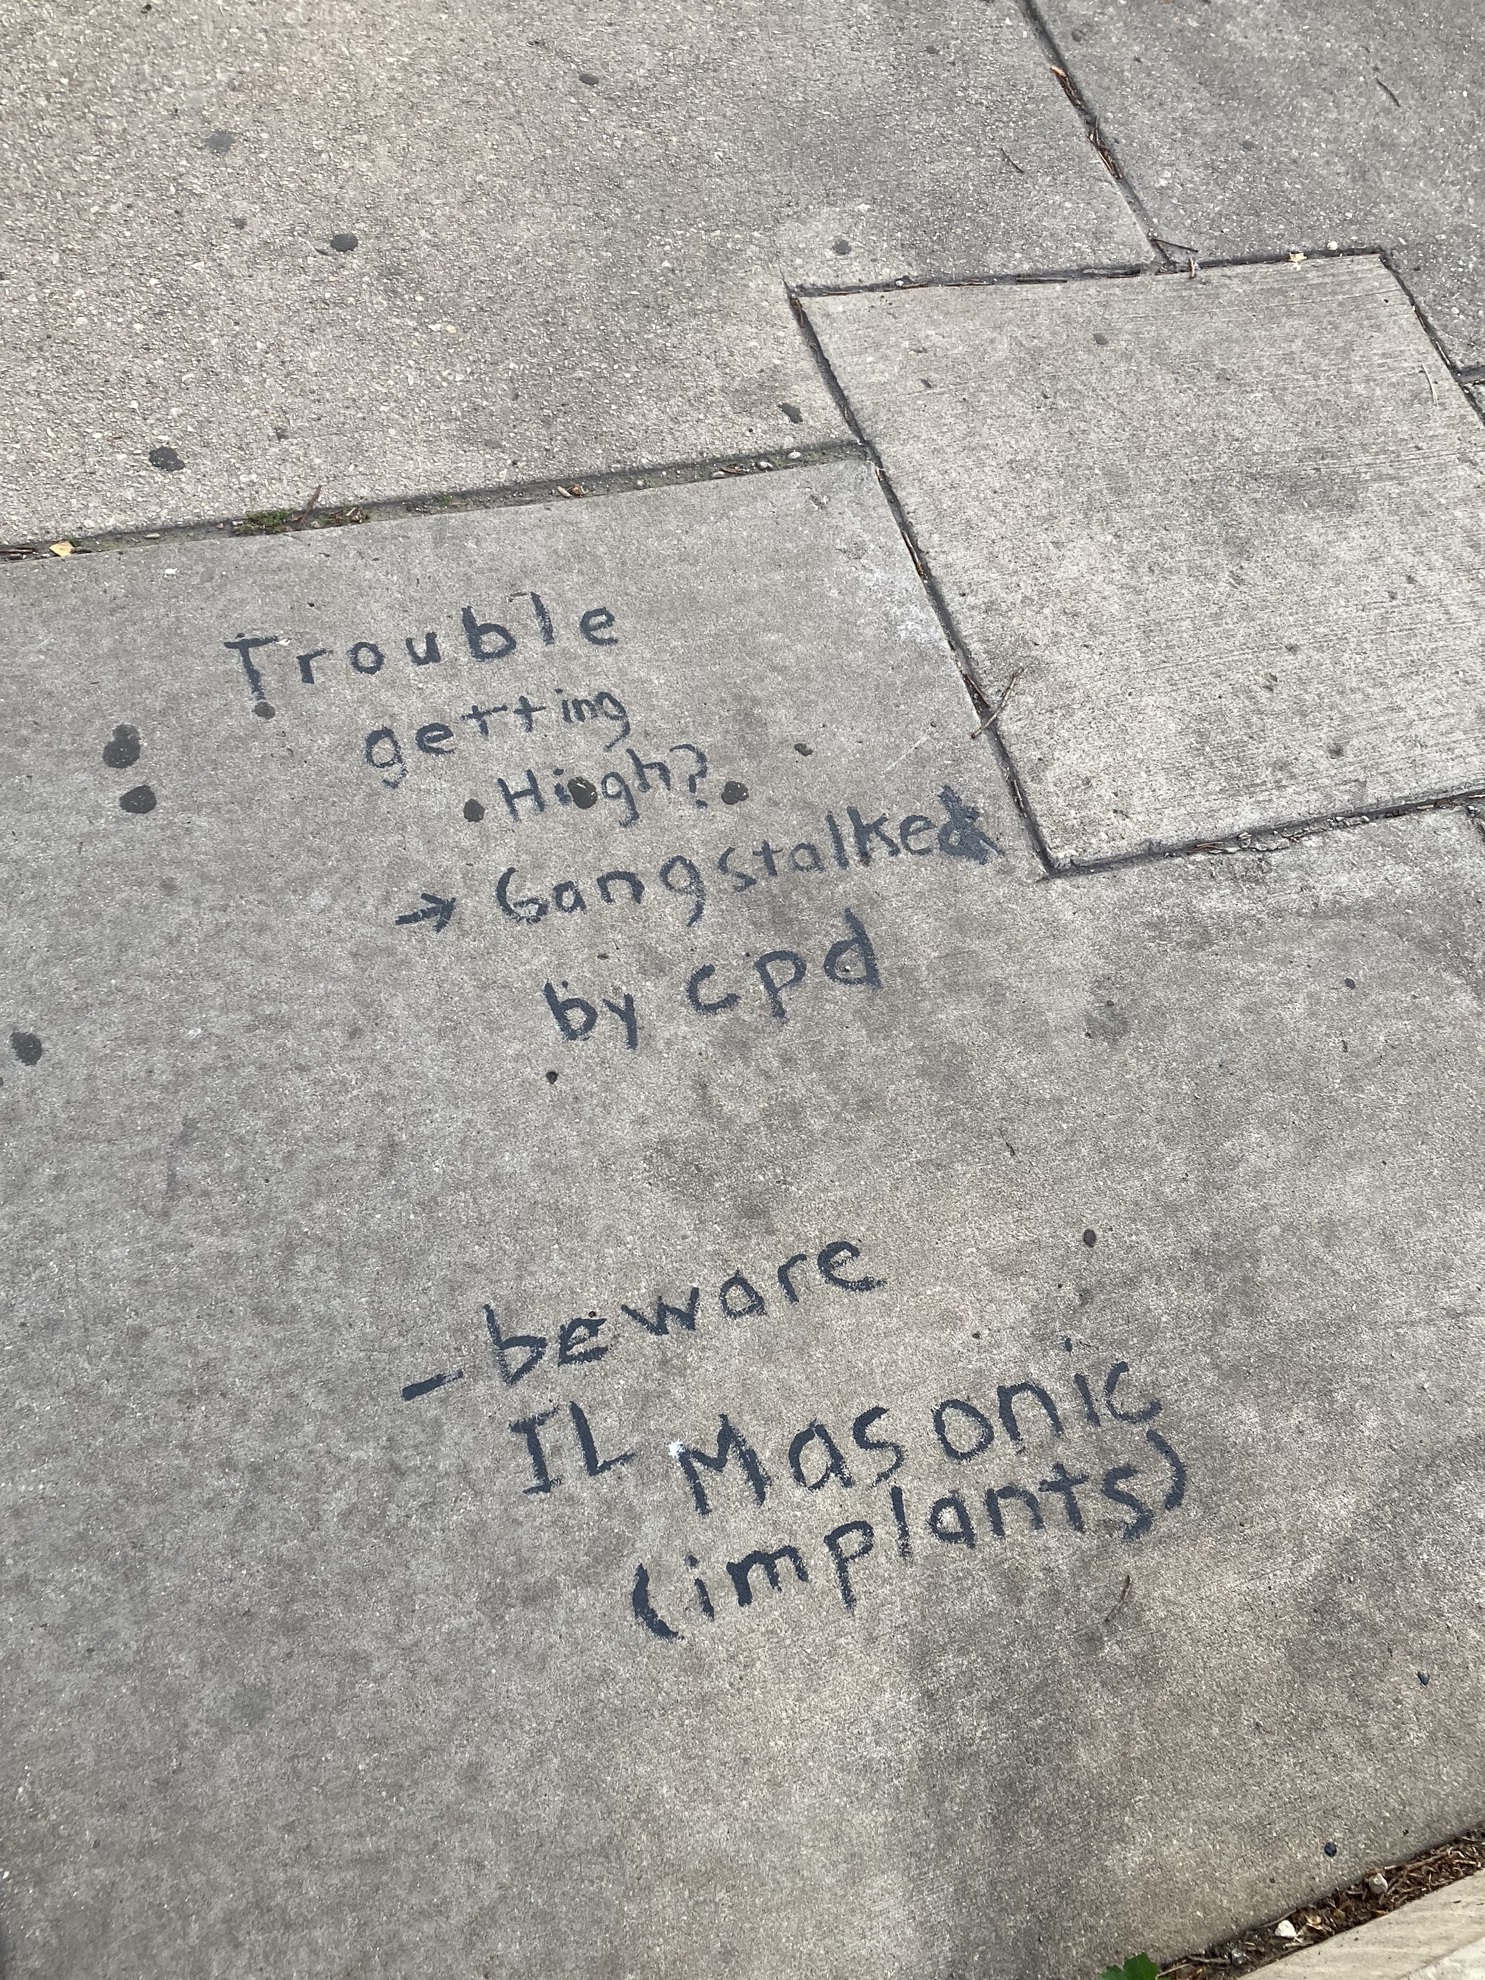 Trouble
getting
High?
→ Gangstalked
by cpd
- beware
IL Masonic
(implants)